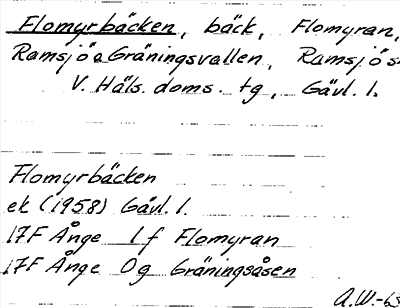 Flomyrbäcken, bäck, Flomyran,
Ramsjö o Gräningsvallen, Ramsjö s
V. Häls. doms. tg, Gävl. l.
Flomyrbäcken
ek (1958) Gävl. l.
17F Ånge 1 f Flomyran
17F Ånge 0 g Gräningsåsen
A.W.-63